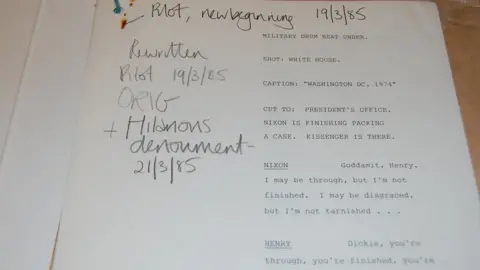 - Pilot, new beginning 19/3/85
Rewritten
Pilot 19/3/85
ORIG
+ Hilsmons
denoument-
21/3/85
MILITARY DRUM BEAT UNDER.
SHOT: WHITE HOUSE.
CAPTION: "WASHINGTON DC, 1974"
CUT TO: PRESIDENT'S OFFICE.
NIXON IS FINISHING PACKING
A CASE. KISSENGER IS THERE.
NIXON Goddamit, Henry.
I may be through, but I'm not
finished. I may be disgraced,
but I'm not tarnished . . .
HENRY Dickie, you're
through, you're finished, you're